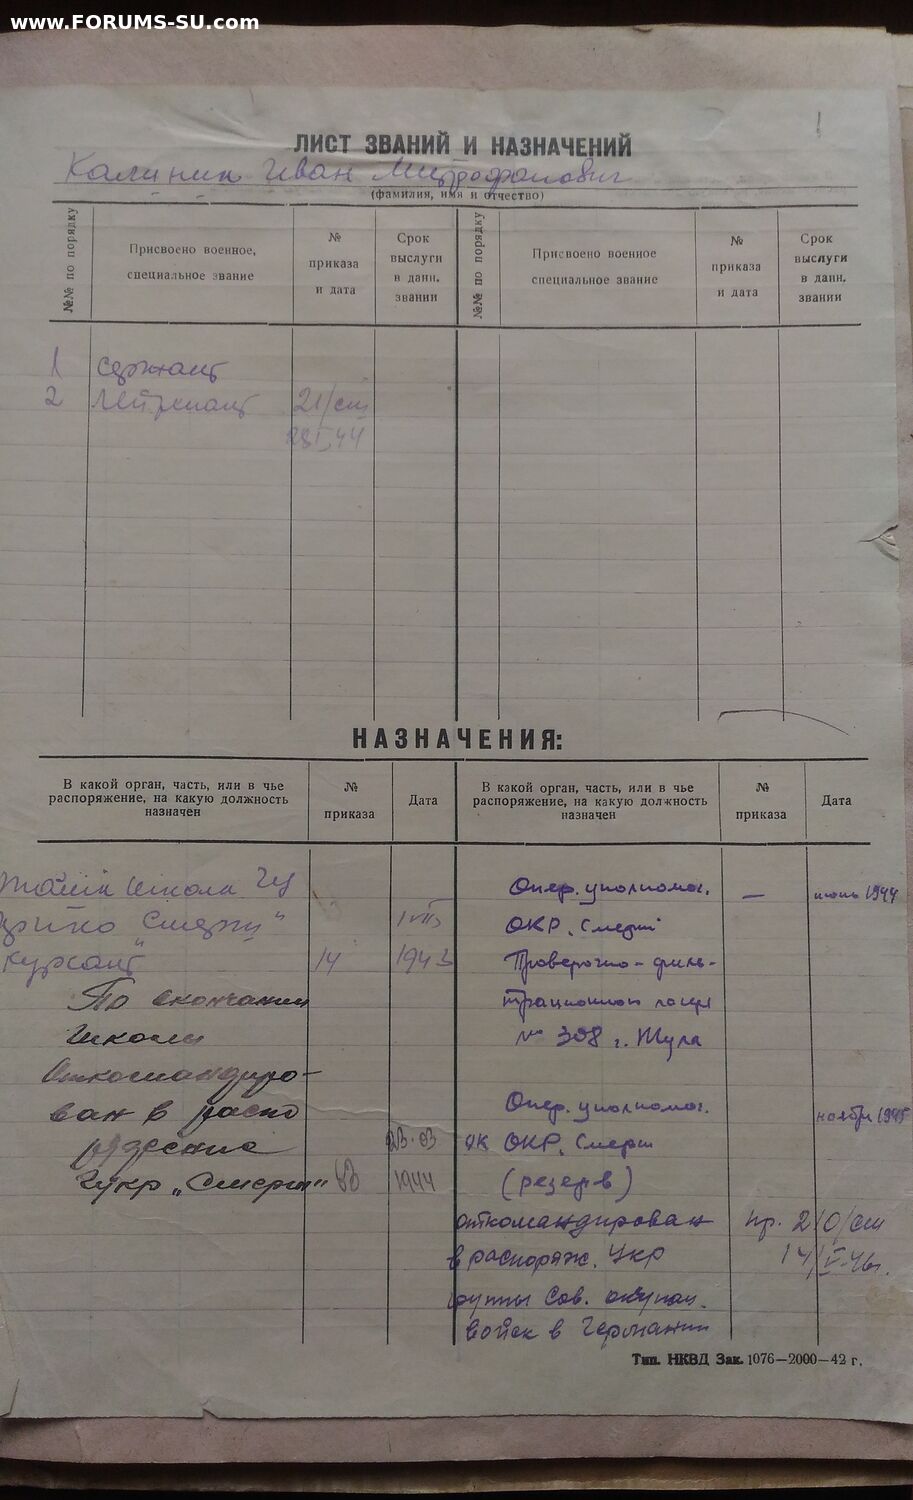 www.FORUMS-SU.com
1
ЛИСТ ЗВАНИЙ И НАЗНАЧЕНИЙ
Калинин Иван Митрофанович
(фамилия, имя и отчество)
№№ по порядку
Присвоено военное,
специальное звание
№
приказа
и дата
Срок
выслуги
в данн.
звании
№№ по порядку
Присвоено военное
специальное звание
№
приказа
и дата
Срок
выслуги
в данн.
звании
1 сержант
2 Лейтенант 21/сш
28 I 44
НАЗНАЧЕНИЯ:
В какой орган, часть, или в чье
распоряжение, на какую должность
назначен
№
приказа
Дата
В какой орган, часть, или в чье
распоряжение, на какую должность
назначен
№
приказа
Дата
школа
Смерш"
курсант 14 1943
По окончании
школы
Откомандиро-
ван в распо
ряжение 23.03
Гукр „Смерш" 1944
Опер. уполномог. — июнь 1944
ОКР. Смерш
Проверочно-филь-
трационного лагеря
№ 308 г. Тула
Опер. уполномог. ноябрь 1945
ОКР. Смерш
(резерв)
откомандирован пр. 210/сш
в распоряж. Укр 14/V-46г.
группы Сов. оккупац.
войск в Германии
Тип. НКВД Зак. 1076—2000—42 г.